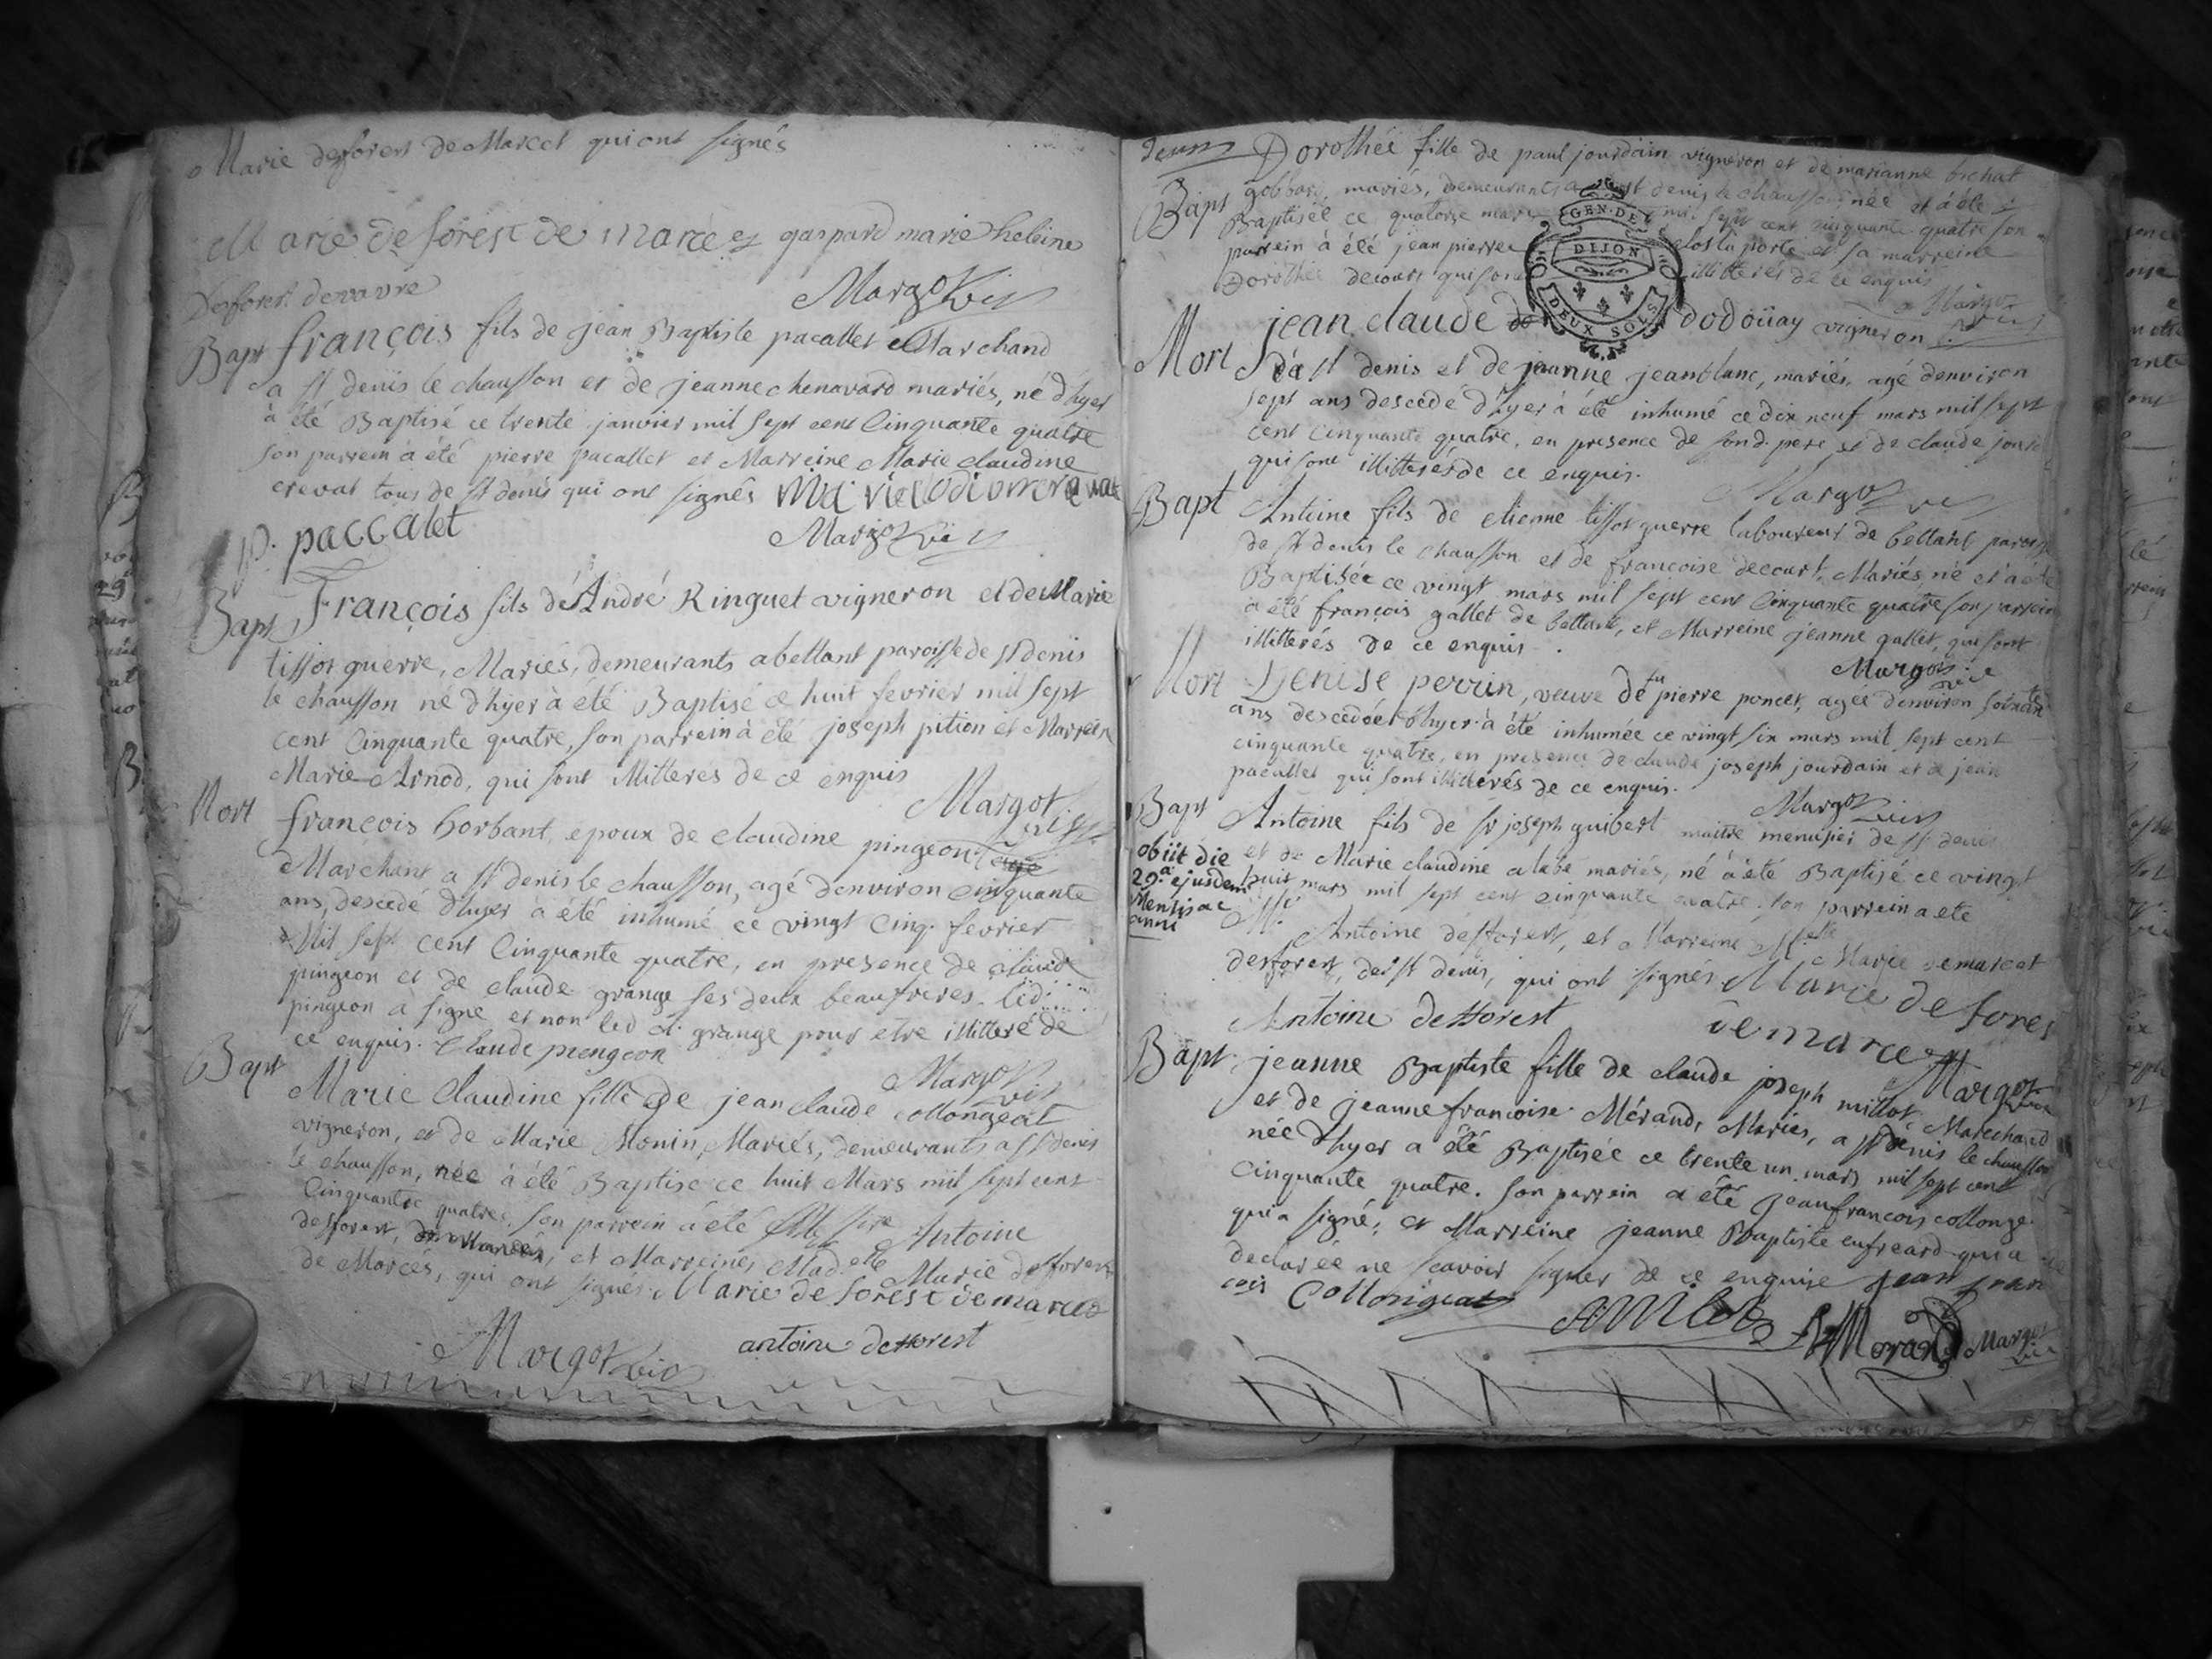 Marie desforest de Marcet qui ont signés
Marie de forest de marcez gaspard marie heleine
desforest devavre
Margot vic
Bapt françois fils de jean Baptiste pacallet Marchand
a st denis le chausson et de jeanne chenavard mariés, né d'hyer
à été Baptisé ce trente janvier mil sept cent Cinquante quatre
son parrein à été pierre pacallet et Marreine Marie claudine
crevat tous de st denis qui ont signés
p. paccalet
Margot vic
Bapt François fils de André Ringuet vigneron et de Marie
tissot guerre, Mariés, demeurants a bettant paroisse de st denis
le chausson né d'hyer à été Baptisé ce huit fevrier mil sept
cent Cinquante quatre, son parrein à été joseph pition et Marrein
Marie Arnod, qui sont illitteres de ce enquis
Margot vic
Mort françois horbant, epoux de claudine pingeon
Marchant a st denis le chausson, agé denviron cinquante
ans, descedé d'hyer à été inhumé ce vingt cinq fevrier
Mil sept cent Cinquante quatre, en presence de claude
pingeon et de claude grange ses deux beaufreres. led
pingeon à signé et non led cl. grange pour etre illitteré de
ce enquis. Claude piengeon
Margot vic
Bapt Marie Claudine fille de jean claude collongeat
vigneron, et de Marie Monin, Mariés, demeurants a st denis
le chausson, née à été Baptisé ce huit Mars mil sept cent
Cinquante quatre. son parrein à été Messire Antoine
desforest, et Marreines Mad.elle Marie desforest
de Marcés, qui ont signés. Marie de forest demarcez
Margot vic antoine desforest
Dorothée fille de paul jourdain vigneron et de marianne bichat
gobbard, mariés, demeurants a st denis le chausson, née et à été
Bapt Baptisée ce quatorze mars mil sept cent cinquante quatre son
parrein à été jean pierre clos la porte et sa marreine
Dorothée decourt qui sont illitteres de ce enquis
Margot vic
GEN. DE
DIJON
DEUX SOLS
Mort jean claude dodoüay vigneron
da st denis et de jeanne jeanblanc, mariés, agé denviron
sept ans descedé d'hyer à été inhumé ce dix neuf mars mil sept
cent cinquante quatre, en presence de sond. pere et de claude
qui sont illitterés de ce enquis.
Margot vic
Bapt Antoine fils de etienne tissot guerre laboureur de bettant paroisse
de st denis le chausson et de francoise decourt, Mariés, né et à été
Baptisée ce vingt mars mil sept cent Cinquante quatre son parrein
à été françois gallet de bettant, et Marreine jeanne gallet, qui sont
illitterés de ce enquis.
Margot vic
Mort Denise perrin, veuve de fu pierre poncet, agée d'environ soixante
ans descedée d'hyer à été inhumée ce vingt six mars mil sept cent
cinquante quatre, en presence de claude joseph jourdain et de jean
pacallet qui sont illitterés de ce enquis.
Margot vic
Bapt Antoine fils de sr joseph guibert maitre menuisier de st denis
et de Marie claudine alabe mariés, né à été Baptisé ce vingt
huit mars mil sept cent cinquante quatre. son parrein a ete
obiit die
29.a ejusdem
Mensis ac
anni
Mre Antoine desforest, et Marreine Melle Marie demarcet
desforest, de st denis, qui ont signés Marie de fores
Antoine desforest de marcez
Margot vic
Bapt jeanne Baptiste fille de claude joseph millot, Marechand
et de jeanne francoise Mérand, Mariés, a st denis le chausson
née d'hyer a été Baptisée ce trente un mars mil sept cent
Cinquante quatre. son parrein a été jeanfrancois collonge
qui a signé, et Marreine jeanne Baptiste enfreard qui a
declarée ne scavoir signer de ce enquise jean fran
cois Collongeat
Morand Margot vic